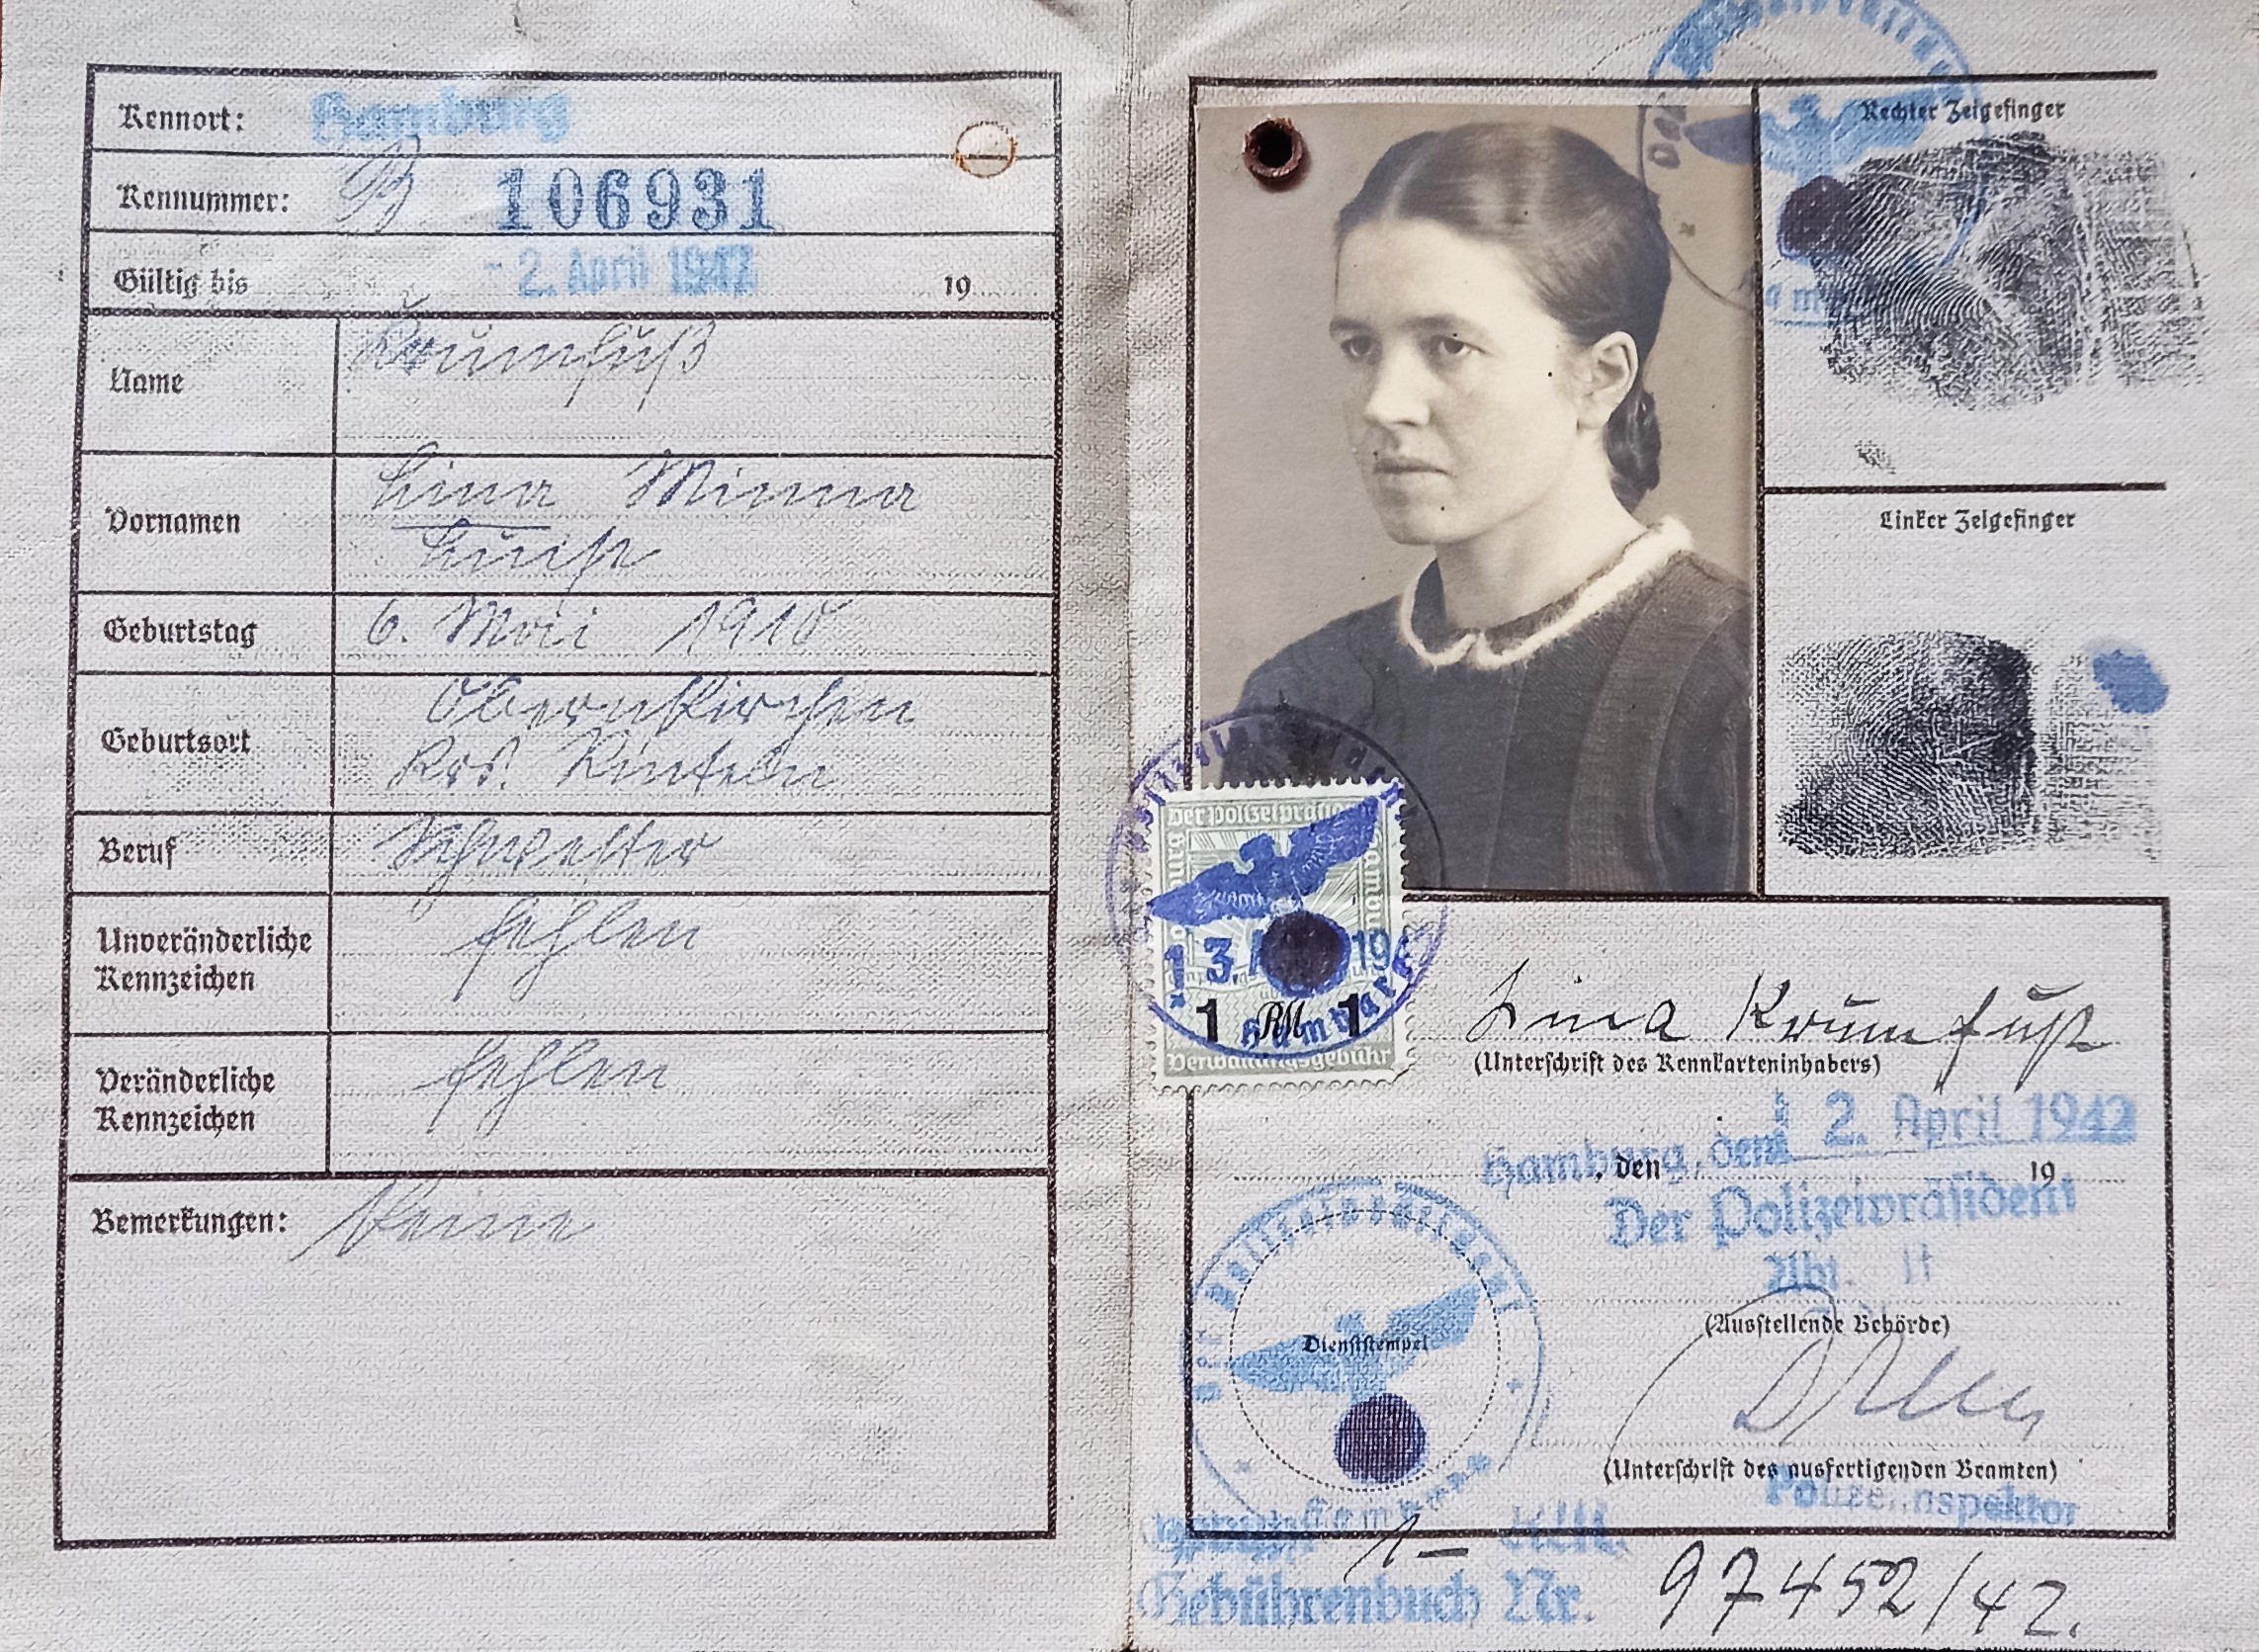 Kennort: Hamburg
Kennummer: B 106931
Gültig bis - 2. April 1947 19
Name Krumfuß
Vornamen Lina Minna
Luise
Geburtstag 6. Mai 1910
Geburtsort Obernkirchen
Krs. Rinteln
Beruf Schwester
Unveränderliche
Kennzeichen fehlen
Veränderliche
Kennzeichen fehlen
Bemerkungen: keine
Rechter Zeigefinger
Linker Zeigefinger
Der Polizeipräsident
13. 19
1 RM 1
Hamburg
Verwaltungsgebühr
Lina Krumfuß
(Unterschrift des Kennkarteninhabers)
Hamburg, den 2. April 1942
, den 19
Der Polizeipräsident
Abt. II
(Ausstellende Behörde)
Der Polizeipräsident
Dienststempel
Hamburg
(Unterschrift des ausfertigenden Beamten)
Polizeiinspektor
1-
Gebührenbuch Nr. 97452/42.